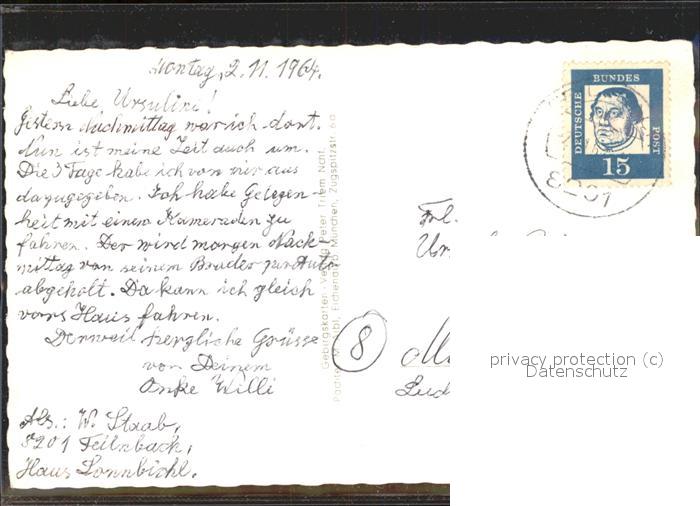 Montag, 2.11.1964.
Liebe Ursulini!
Gestern Nachmittag war ich dort.
Nun ist meine Zeit auch um.
Die 3 Tage habe ich von mir aus
dazugegeben. Ich habe Gelegen-
heit mit einem Kameraden zu
fahren. Der wird morgen Nach-
mittag von seinem Bruder per Auto
abgeholt. Da kann ich gleich
vors Haus fahren.
Derweil herzliche Grüsse
von Deinem
Onke Willi
Abs.: W. Staab,
8201 Feilnbach,
Haus Sonnbichl.
Gebirgskarten - Verlag Peter Triem Nchf.
München, Zugspitzstr. 6a
DEUTSCHE
BUNDES
POST
15
8201
Frl.
8
privacy protection (c)
Datenschutz